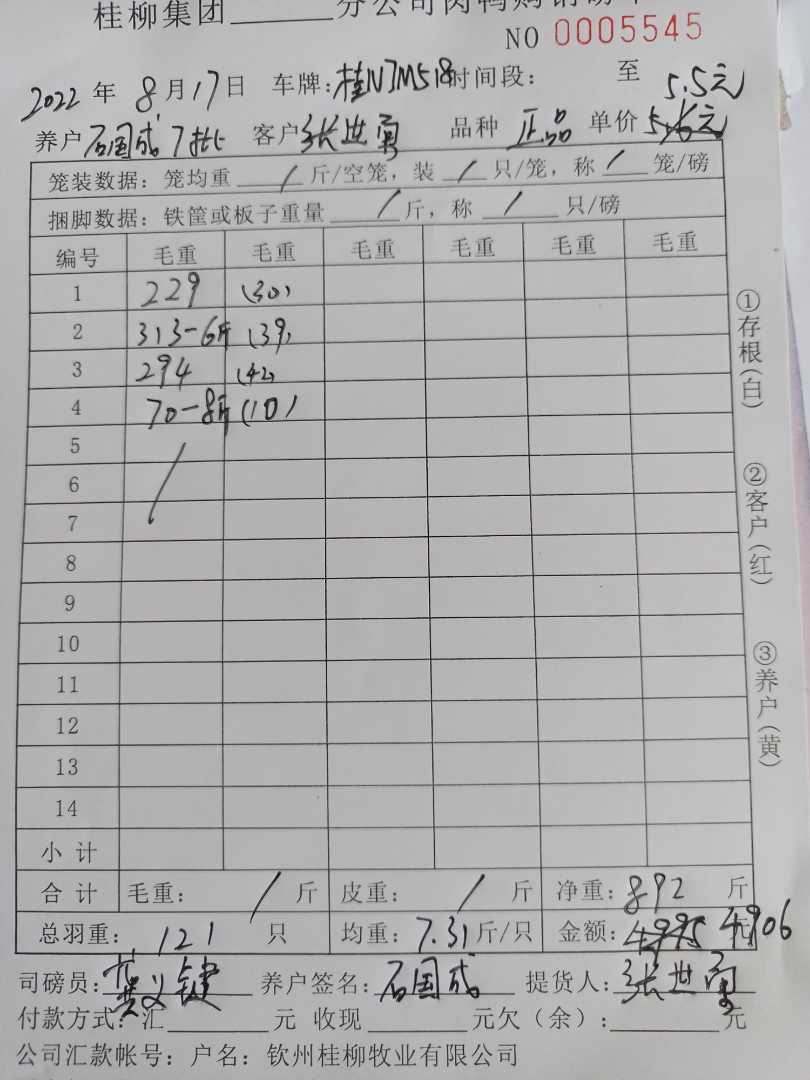 桂柳集团______分公司肉鸭购销磅单
NO 0005545
2022年 8月17日 车牌:桂N7M518 时间段: 至
5.5元
养户 石国成7批 客户 张世勇 品种 正品 单价 5.6元
笼装数据: 笼均重 / 斤/空笼, 装 / 只/笼, 称 / 笼/磅
捆脚数据: 铁筐或板子重量 / 斤, 称 / 只/磅
编号 毛重 毛重 毛重 毛重 毛重 毛重
1 229 (30)
2 313-6斤 (39)
3 294 (42)
4 70-8斤 (10)
5 /
6
7
8
9
10
11
12
13
14
小 计
合 计 毛重: / 斤 皮重: / 斤 净重: 892 斤
总羽重: 121 只 均重: 7.31斤/只 金额: 4995 4906 元
司磅员: 义键 养户签名: 石国成 提货人: 张世勇
付款方式: 汇______元 收现______元欠(余):______元
公司汇款帐号: 户名: 钦州桂柳牧业有限公司
①存根(白)
②客户(红)
③养户(黄)